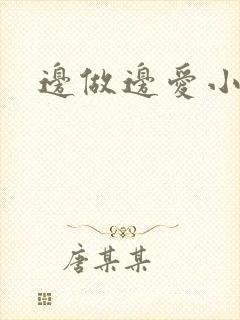 邊做邊愛小
唐某某